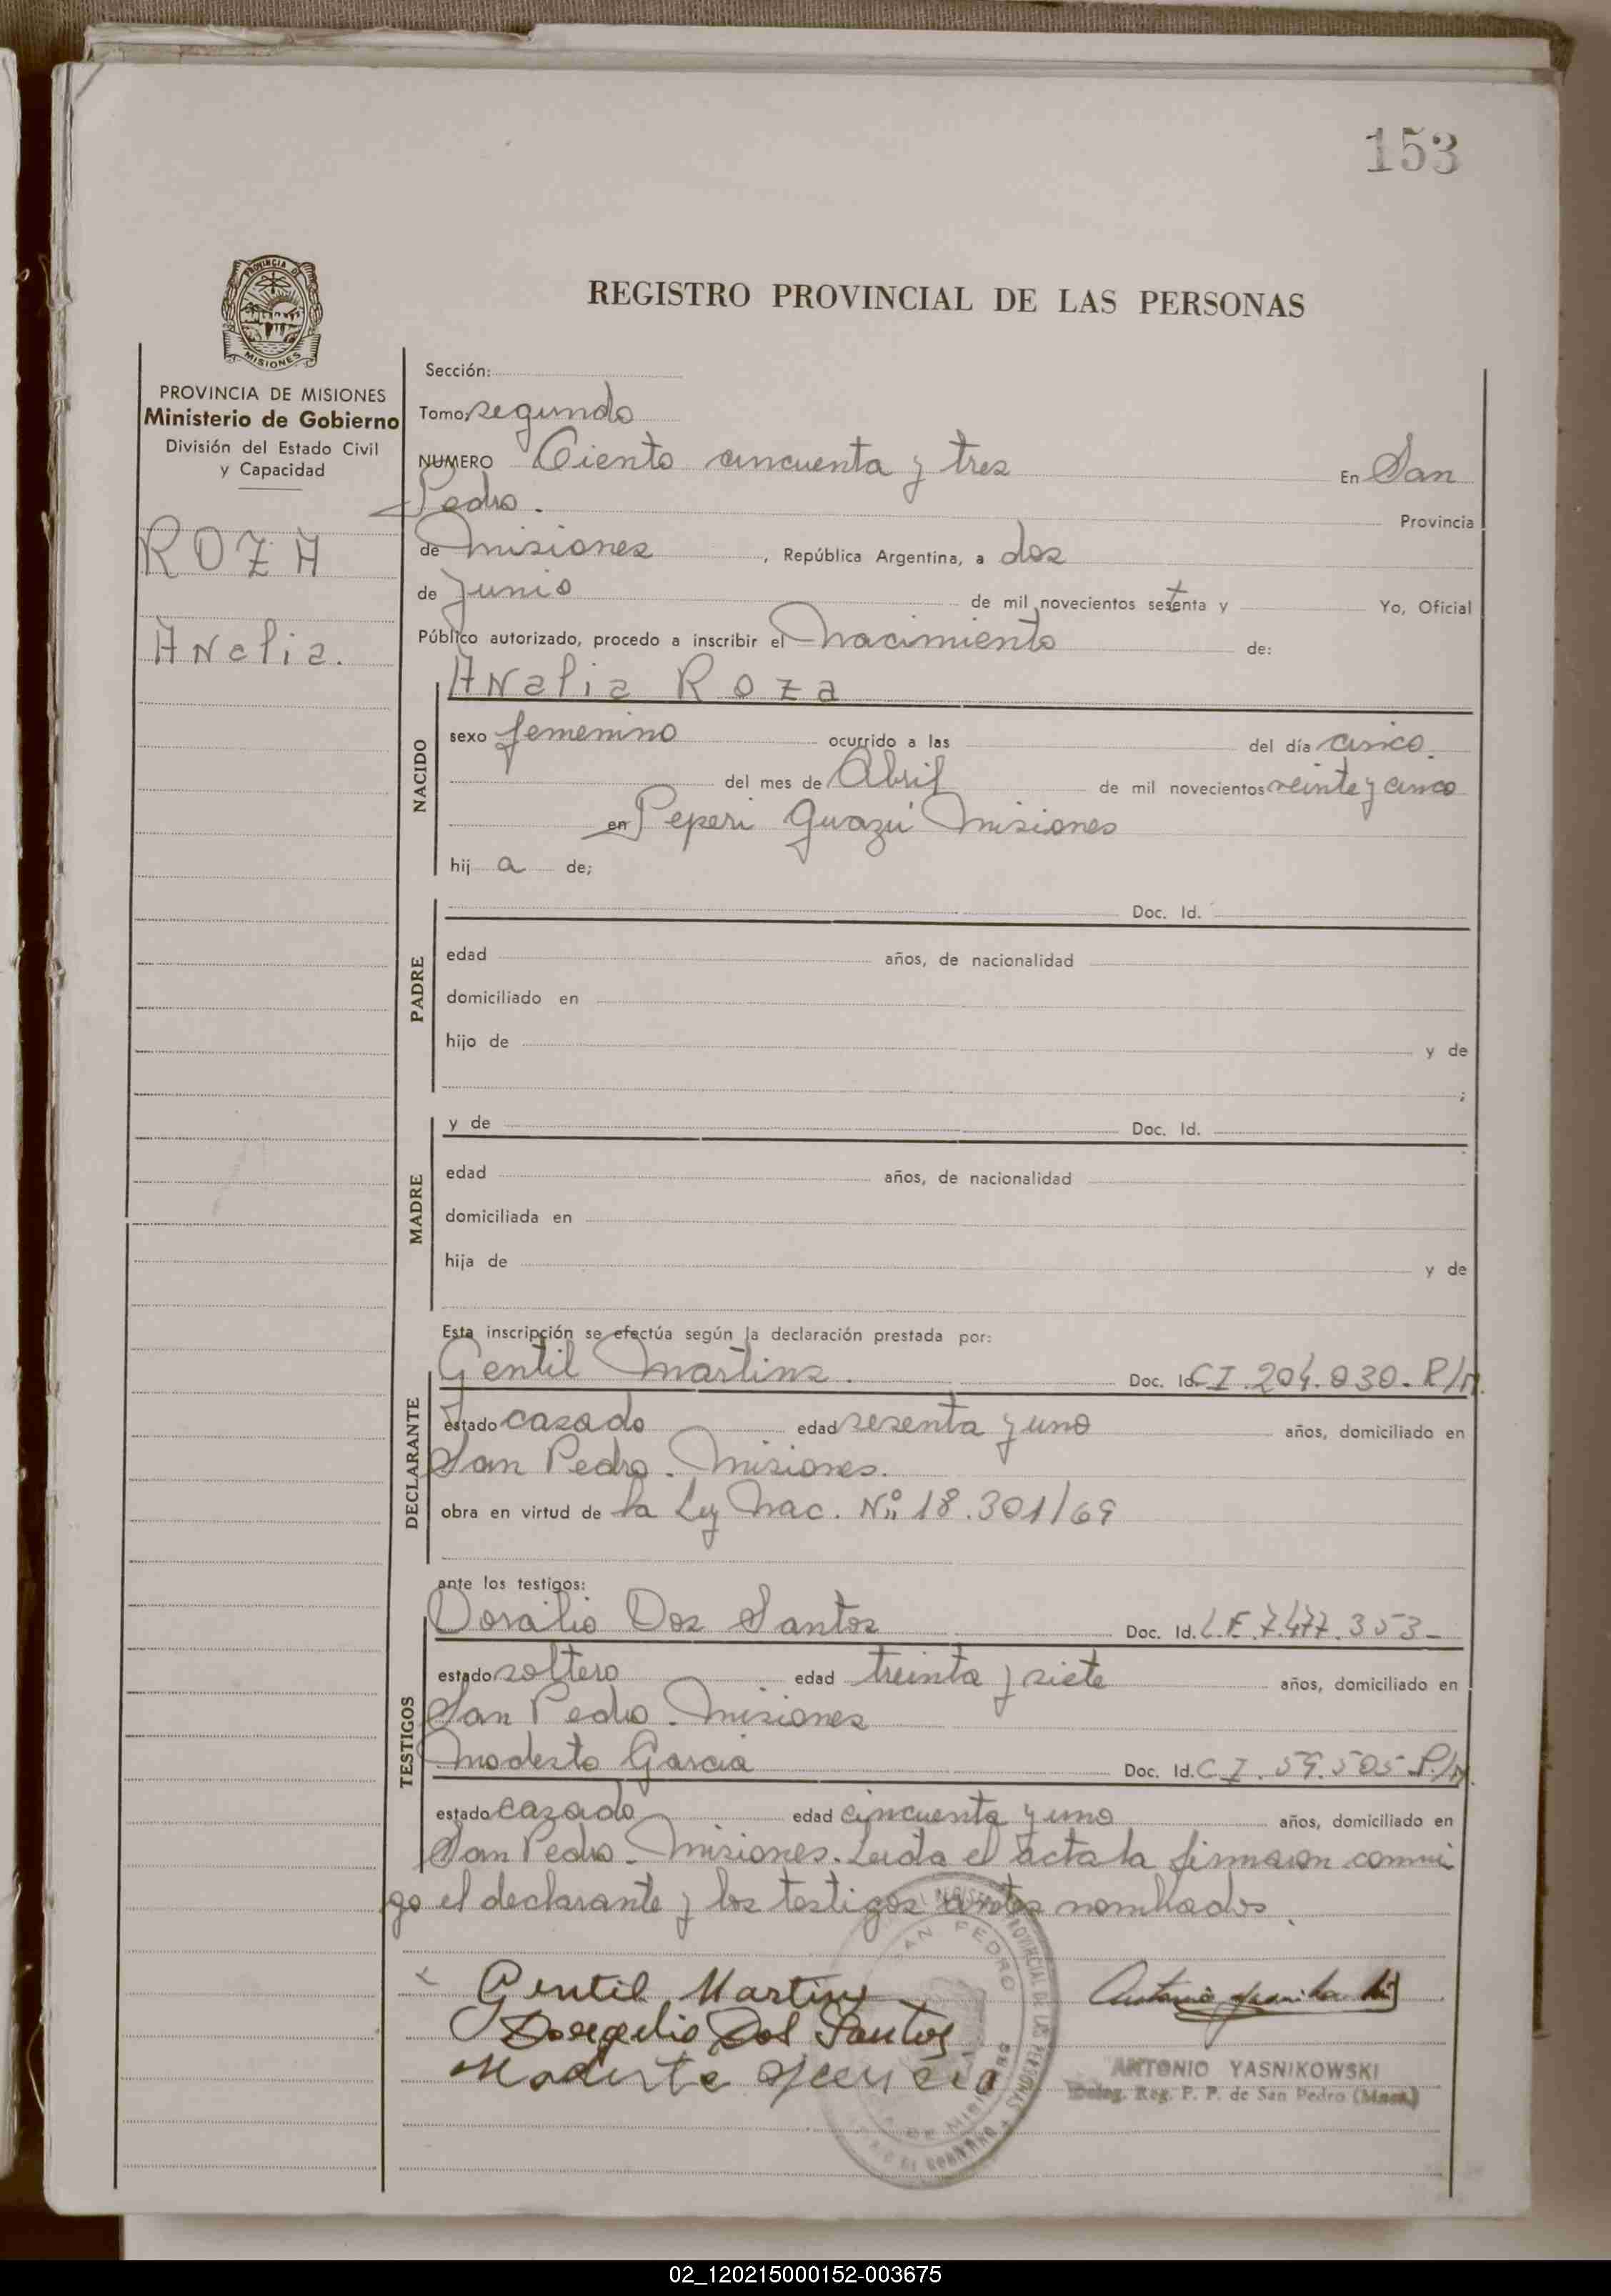 153
REGISTRO PROVINCIAL DE LAS PERSONAS
PROVINCIA DE
MISIONES
PROVINCIA DE MISIONES
Ministerio de Gobierno
División del Estado Civil
y Capacidad
ROZA
Analia.
Sección:
Tomo segundo
NUMERO Ciento cincuenta y tres En San
Pedro. Provincia
de Misiones, República Argentina, a dos
de Junio de mil novecientos setenta y Yo, Oficial
Público autorizado, procedo a inscribir el Nacimiento de:
Analia Roza
NACIDO
sexo femenino ocurrido a las del día cinco
del mes de Abril de mil novecientos veinte y cinco
en Peperi Guazú Misiones
hij a de;
PADRE
Doc. Id.
edad años, de nacionalidad
domiciliado en
hijo de y de
;
MADRE
y de Doc. Id.
edad años, de nacionalidad
domiciliada en
hija de y de
Esta inscripción se efectúa según la declaración prestada por:
DECLARANTE
Gentil Martins. Doc. Id. C I. 204.030. P/M.
estado casado edad sesenta y uno años, domiciliado en
San Pedro. Misiones.
obra en virtud de la Ley Nac. Nº 18.301/69
ante los testigos:
TESTIGOS
Doralio Dos Santos Doc. Id. L.E. 7.477.353-
estado soltero edad treinta y siete años, domiciliado en
San Pedro. Misiones
Modesto Garcia Doc. Id. C I. 59.505 P/M.
estado cazado edad cincuenta y uno años, domiciliado en
San Pedro. Misiones. Leida el acta la firmaron conmi
go el declarante y los testigos antes nombrados.
Gentil Martins
Dos Santos
SAN PEDRO
ANTONIO YASNIKOWSKI
Deleg. Reg. P. P. de San Pedro (Mnes.)
02_120215000152-003675